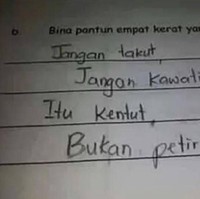 b Bina pantun empat kerat
Jangan takut,
Jangan
Itu kentut,
Bukan petir